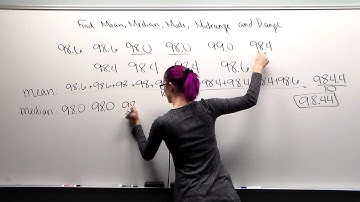 Find Mean, Median, Mode, Midrange and Range
98.6 98.6 98.0 98.0 99.0 98.4
98.4 98.4 98.4 98.6
mean: 98.6+98.6+98. +98.4+98.4+98.6 = 984.4
10
98.44
median: 98.0 98.0 98